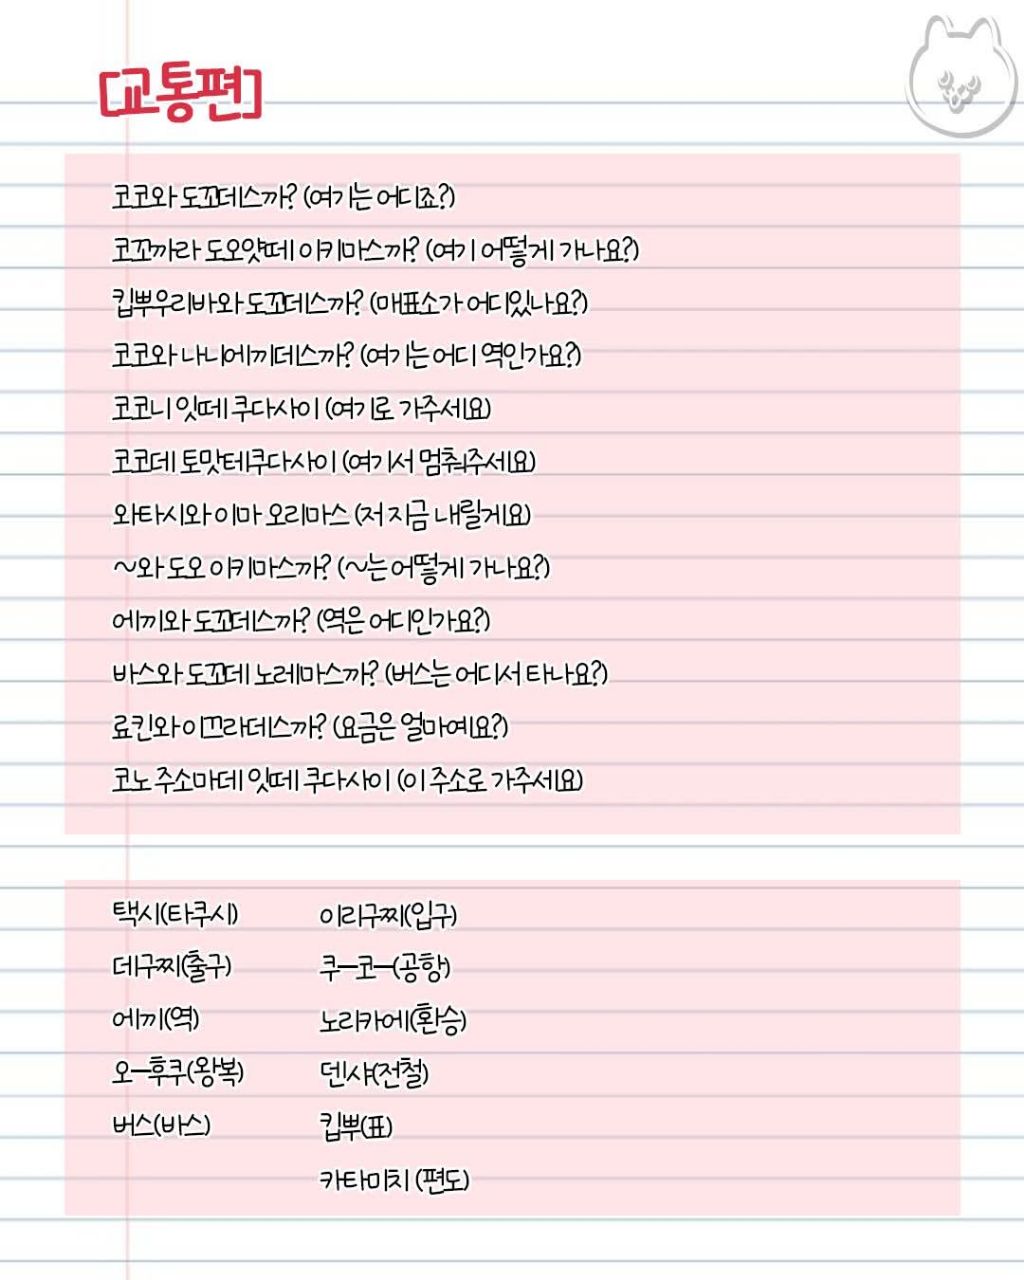 [교통편]
코코와 도꼬데스까? (여기는 어디죠?)
코꼬까라 도오얏떼 이키마스까? (여기 어떻게 가나요?)
킵뿌우리바와 도꼬데스까? (매표소가 어디있나요?)
코코와 나니에끼데스까? (여기는 어디 역인가요?)
코코니 잇떼 쿠다사이 (여기로 가주세요)
코코데 토맛테쿠다사이 (여기서 멈춰주세요)
와타시와 이마 오리마스 (저 지금 내릴게요)
~와 도오 이키마스까? (~는 어떻게 가나요?)
에끼와 도꼬데스까? (역은 어디인가요?)
바스와 도꼬데 노레마스까? (버스는 어디서 타나요?)
료킨와 이끄라데스까? (요금은 얼마예요?)
코노 주소마데 잇떼 쿠다사이 (이 주소로 가주세요)
택시(타쿠시)
데구찌(출구)
에끼(역)
오ー후쿠(왕복)
버스(바스)
이리구찌(입구)
쿠ー코ー(공항)
노리카에(환승)
덴샤(전철)
킵뿌(표)
카타미치 (편도)